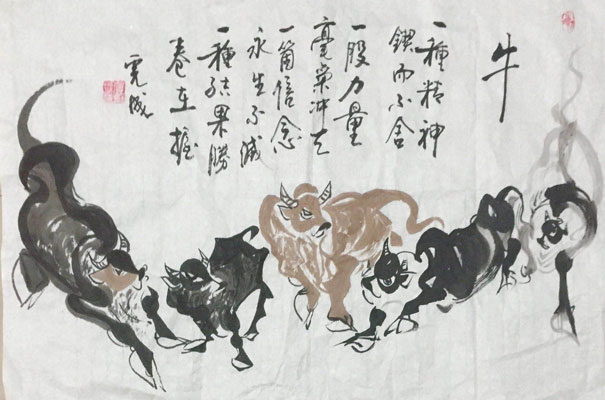 牛
一種精神
鍥而不舍
一股力量
豪氣冲天
一箇信念
永生不滅
一種結果勝
卷在握